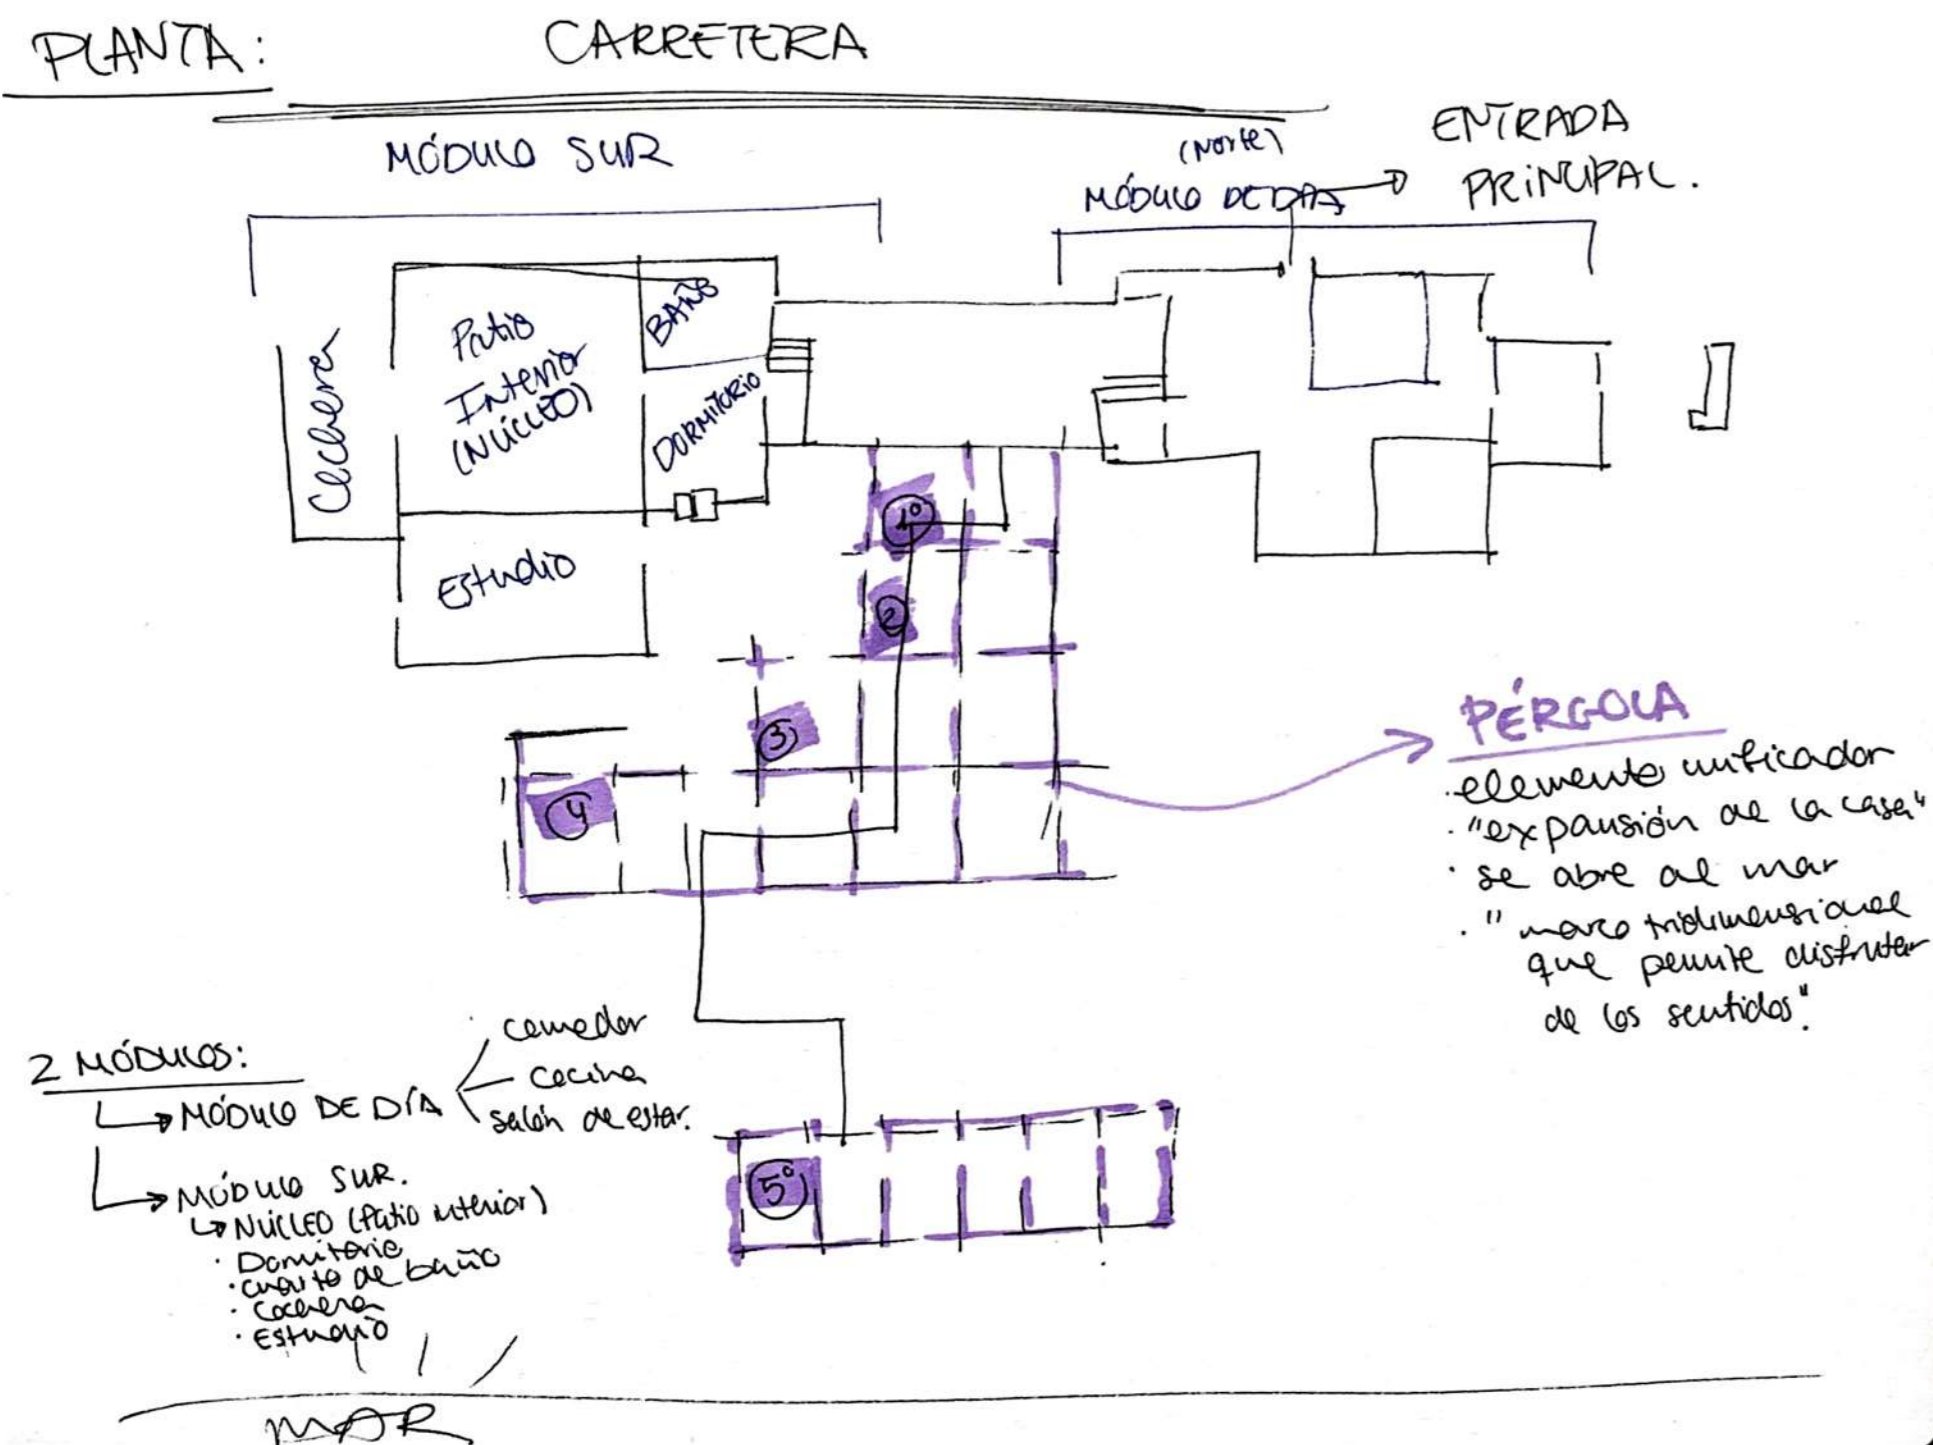 PLANTA:
CARRETERA
MÓDULO SUR
(Norte)
MÓDULO DE DÍA
ENTRADA
PRINCIPAL.
Cochera
Patio
Interior
(NÚCLEO)
BAÑO
DORMITORIO
Estudio
1º
2
3
4
PÉRGOLA
· elemento unificador
· "expansión de la casa"
· se abre al mar
· "marco tridimensional
que permite disfrutar
de los sentidos".
2 MÓDULOS:
MÓDULO DE DÍA
comedor
cocina
salón de estar.
MÓDULO SUR.
NÚCLEO (Patio interior)
· Dormitorio
· cuarto de baño
· Cochera
· Estudio
5º
MAR